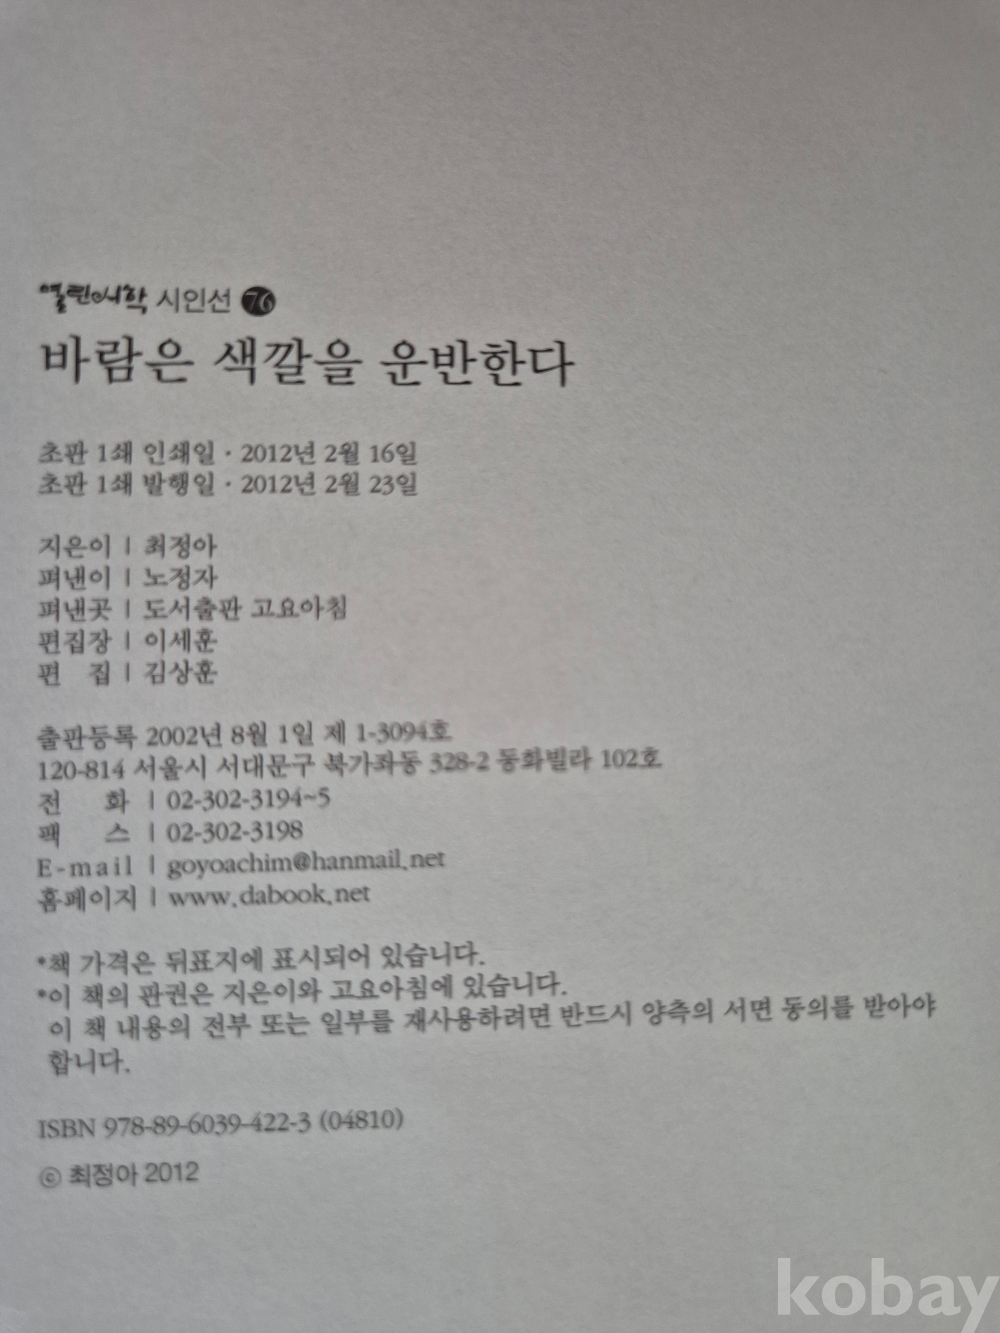 열린시학 시인선 76
바람은 색깔을 운반한다
초판 1쇄 인쇄일 · 2012년 2월 16일
초판 1쇄 발행일 · 2012년 2월 23일
지은이 | 최정아
펴낸이 | 노정자
펴낸곳 | 도서출판 고요아침
편집장 | 이세훈
편 집 | 김상훈
출판등록 2002년 8월 1일 제 1-3094호
120-814 서울시 서대문구 북가좌동 328-2 동화빌라 102호
전 화 | 02-302-3194~5
팩 스 | 02-302-3198
E-mail | goyoachim@hanmail.net
홈페이지 | www.dabook.net
*책 가격은 뒤표지에 표시되어 있습니다.
*이 책의 판권은 지은이와 고요아침에 있습니다.
이 책 내용의 전부 또는 일부를 재사용하려면 반드시 양측의 서면 동의를 받아야
합니다.
ISBN 978-89-6039-422-3 (04810)
ⓒ 최정아 2012
kobay